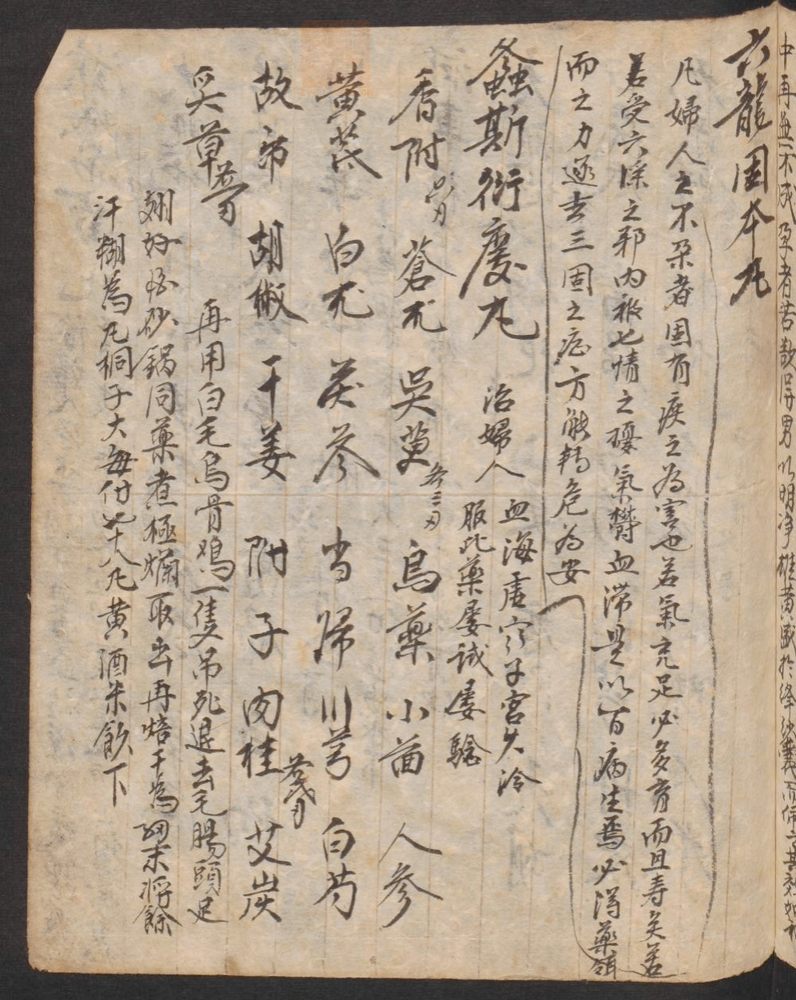 中再並不成孕者苦數得男以明净雄黄
六龍固本丸
凡婦人之不孕者因有疾之為害也若氣充足必多育而且寿矣若
若受六淫之邪内被七情之擾氣欝血滞是以百病生焉必得藥領
而之力逐去三固之疵方能轉危為安
螽斯衍慶丸 治婦人 血海虚寒子宫久冷
服此藥屡试屡驗
香附 蒼朮 吳萸 各三刄 烏藥 小茴 人參
黄芪 白朮 茯苓 当歸 川芎 白芍
故帋 胡椒 干姜 附子 肉桂 各弍刄 艾炭
炙草
再用白毛烏骨鸡一隻吊死退去毛腸頭足
翅好 砂鍋同藥煮極爛取出再焙干為細末将餘
汗糊為丸桐子大每付七十八丸黄酒米飲下